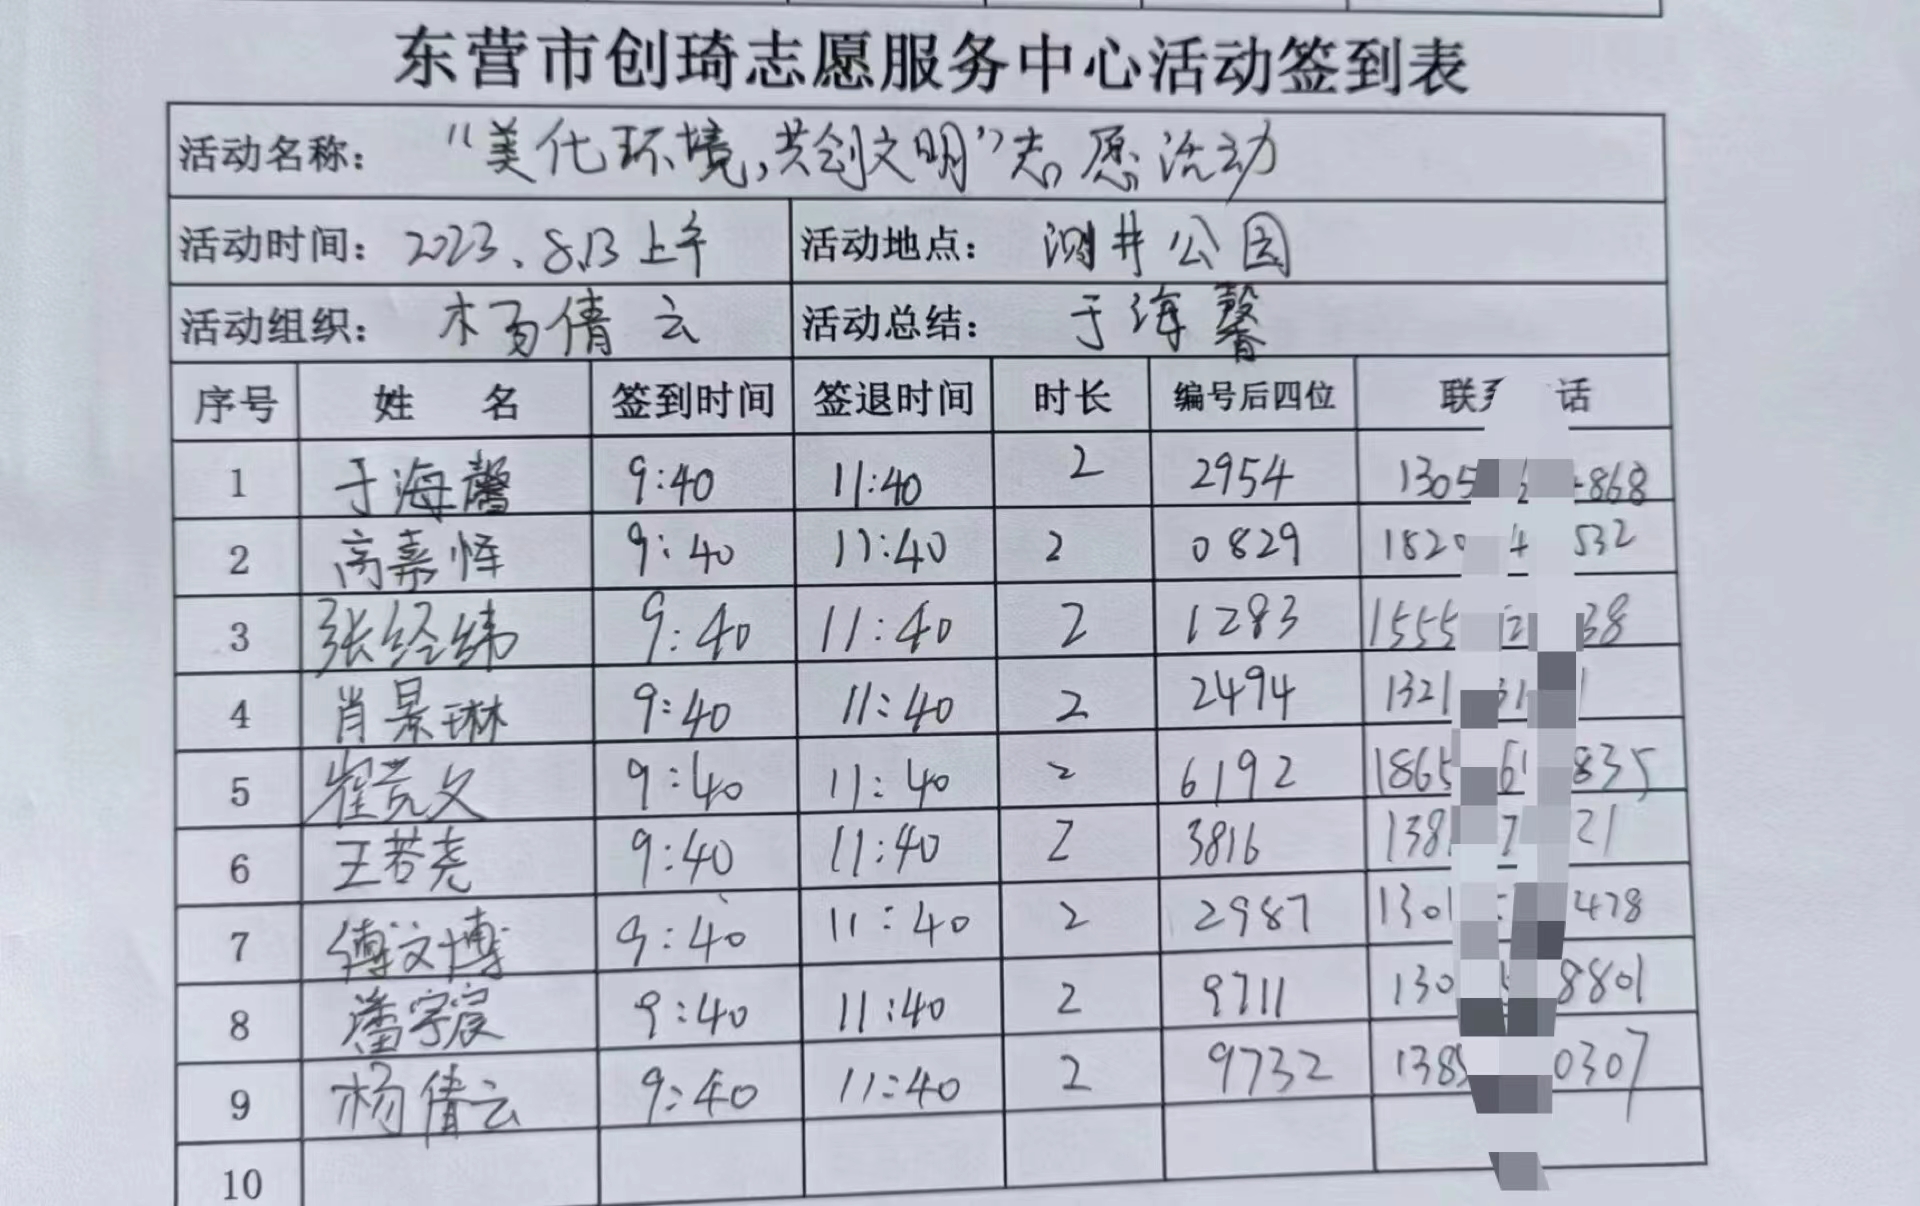 东营市创琦志愿服务中心活动签到表
活动名称： “美化环境，共创文明”志愿活动
活动时间： 2023.8.13上午 活动地点： 测井公园
活动组织： 杨倩云 活动总结： 于海馨
序号 姓 名 签到时间 签退时间 时长 编号后四位 联 话
1 于海馨 9:40 11:40 2 2954 1305 868
2 高嘉怿 9:40 11:40 2 0829 1820 4 532
3 张经纬 9:40 11:40 2 1283 1555 2 38
4 肖景琳 9:40 11:40 2 2494 1321 31 1
5 崔文 9:40 11:40 2 6192 1865 61 835
6 王若尧 9:40 11:40 2 3816 138 7 21
7 傅文博 9:40 11:40 2 2987 1301 478
8 潘宇宸 9:40 11:40 2 9711 130 8801
9 杨倩云 9:40 11:40 2 9732 1385 0307
10